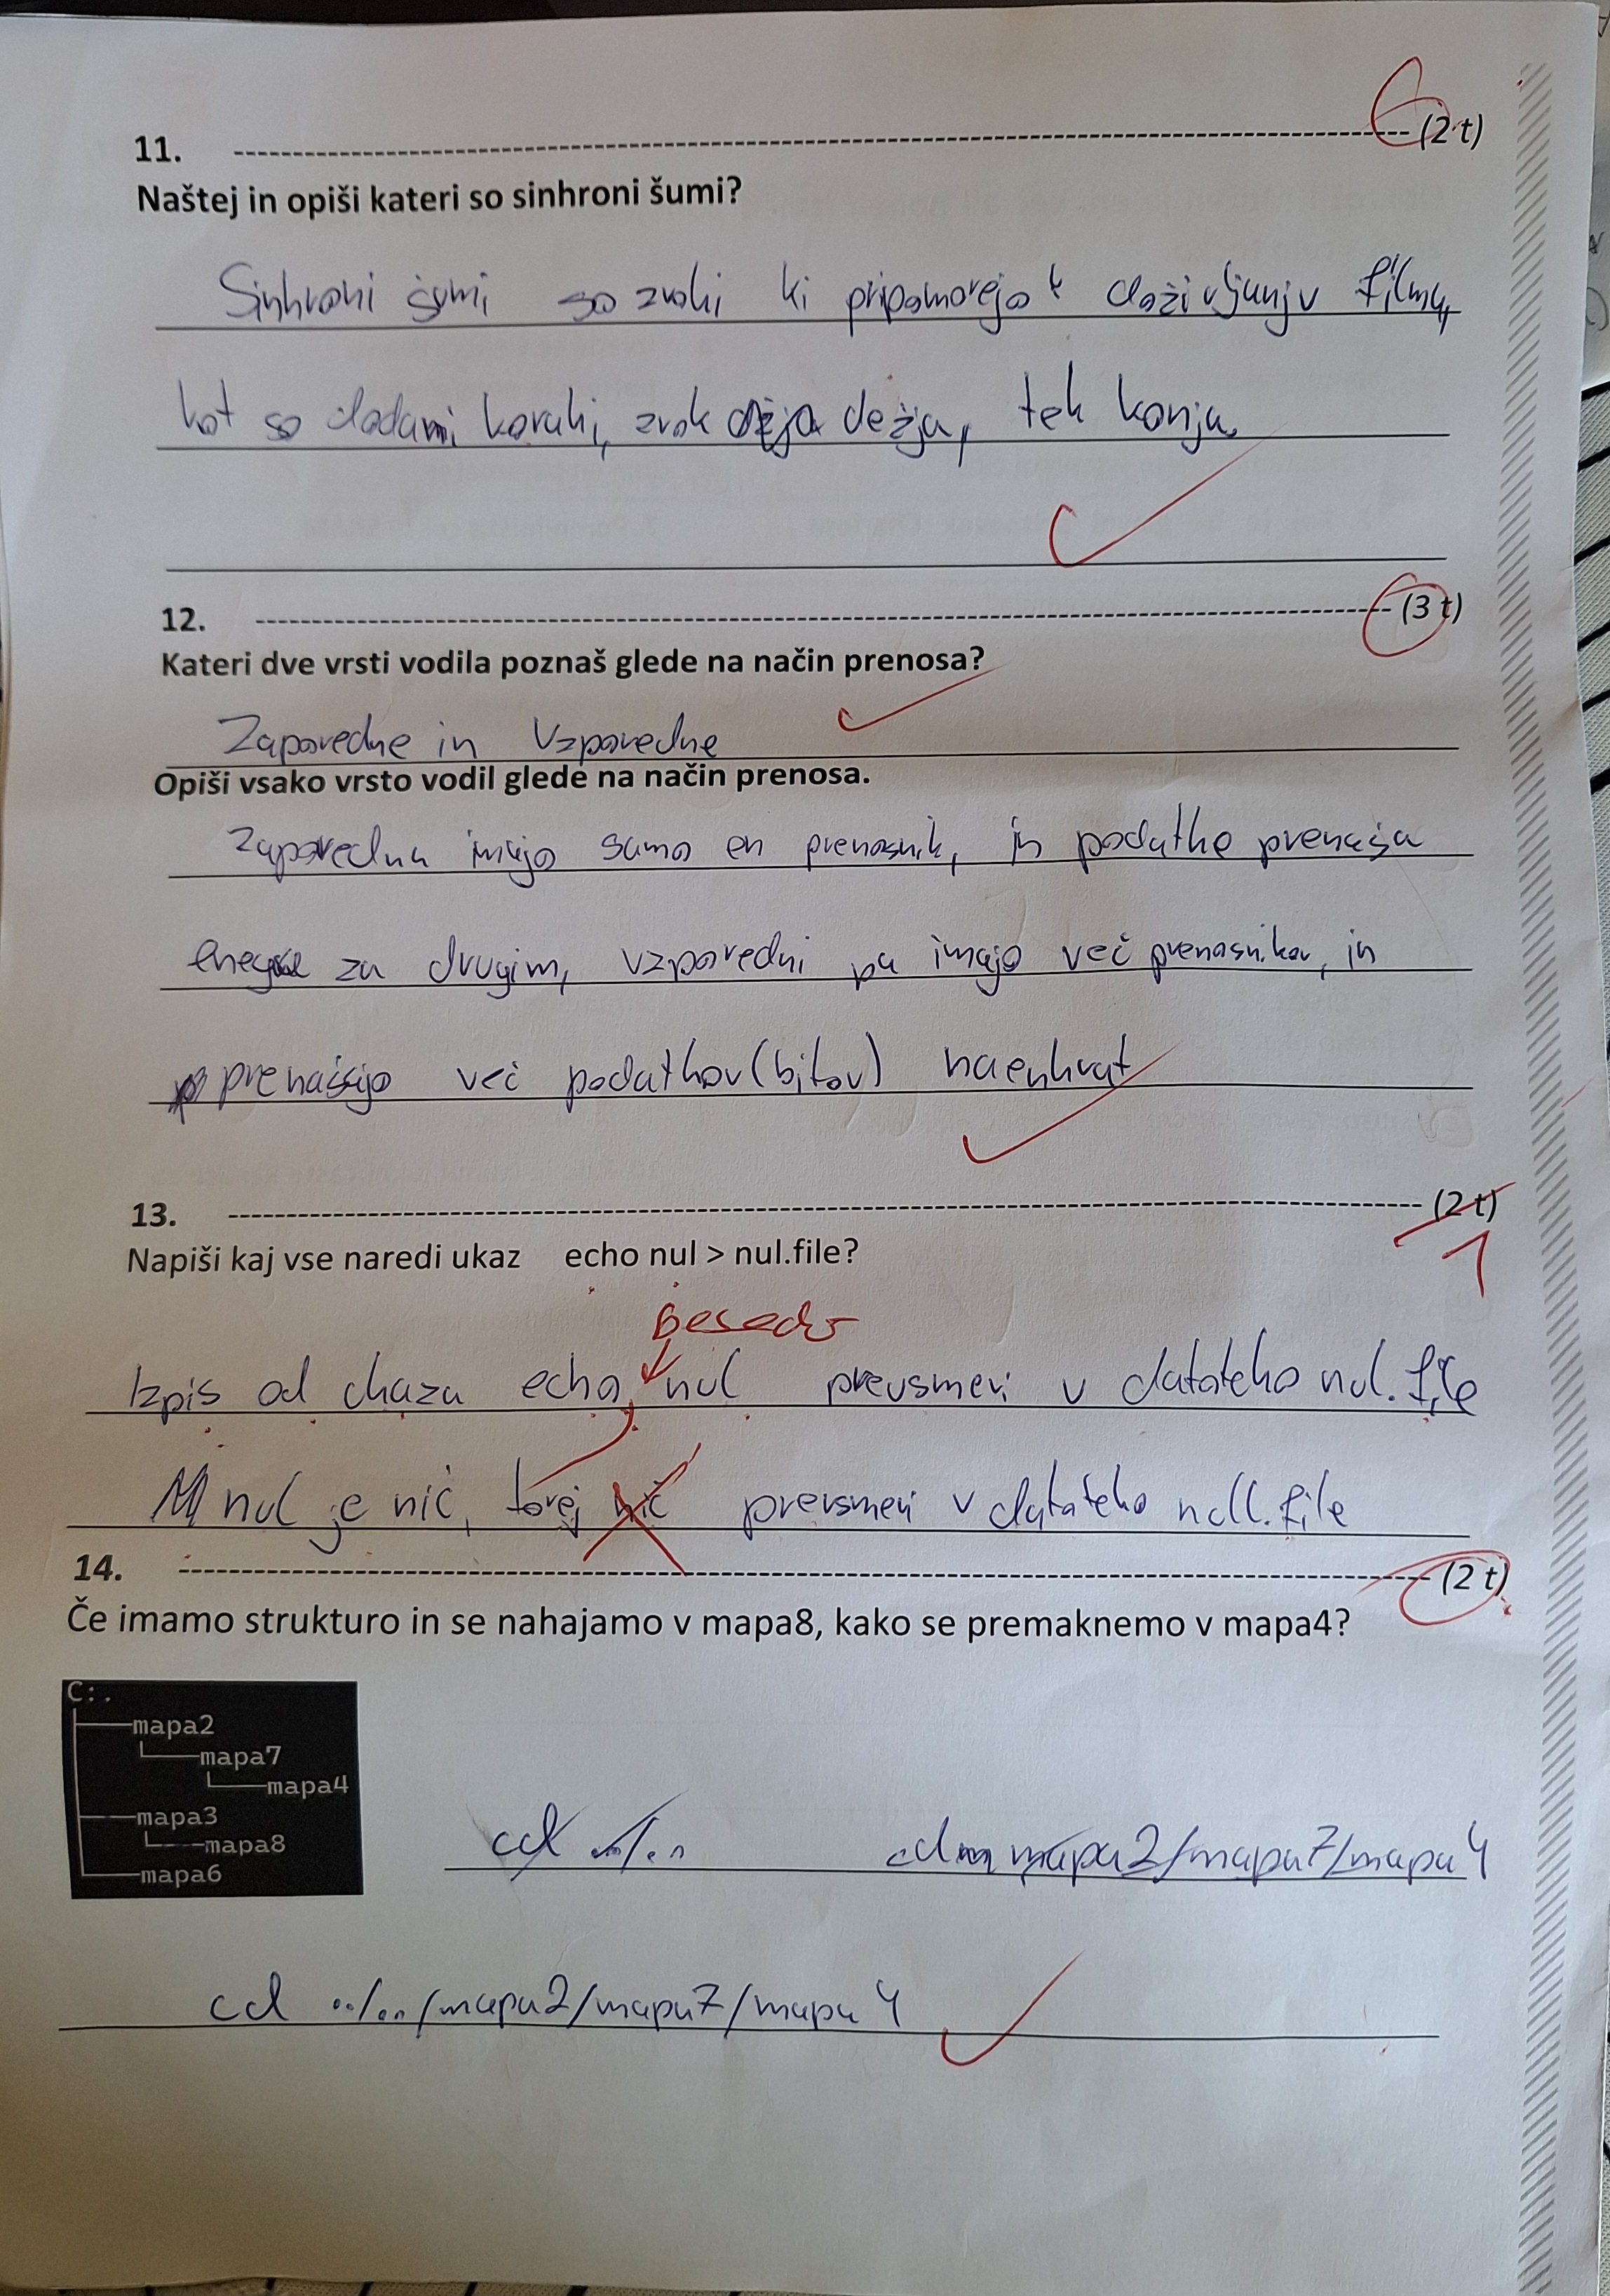 11. (2 t)
Naštej in opiši kateri so sinhroni šumi?
Sinhroni šumi so zvoki ki pripomorejo k doživljanju filma,
kot so dodani koraki, zvok dežja, tek konja.
12. (3 t)
Kateri dve vrsti vodila poznaš glede na način prenosa?
Zaporedne in Vzporedne
Opiši vsako vrsto vodil glede na način prenosa.
Zaporedna imajo samo en prenosnik, in podatke prenaša
enega za drugim, vzporedni pa imajo več prenosnikov, in
prenašajo več podatkov (bitov) naenkrat
13. (2 t)
1
Napiši kaj vse naredi ukaz echo nul > nul.file?
Besedo
Izpis od ukaza echo, nul preusmeri v datoteko nul.file
nul je nič, torej nič preusmeri v datoteko null.file
14. (2 t)
Če imamo strukturo in se nahajamo v mapa8, kako se premaknemo v mapa4?
C:.
mapa2
mapa7
mapa4
mapa3
mapa8
mapa6
cd ../.. cd mapa2/mapa7/mapa4
cd ../../mapa2/mapa7/mapa4